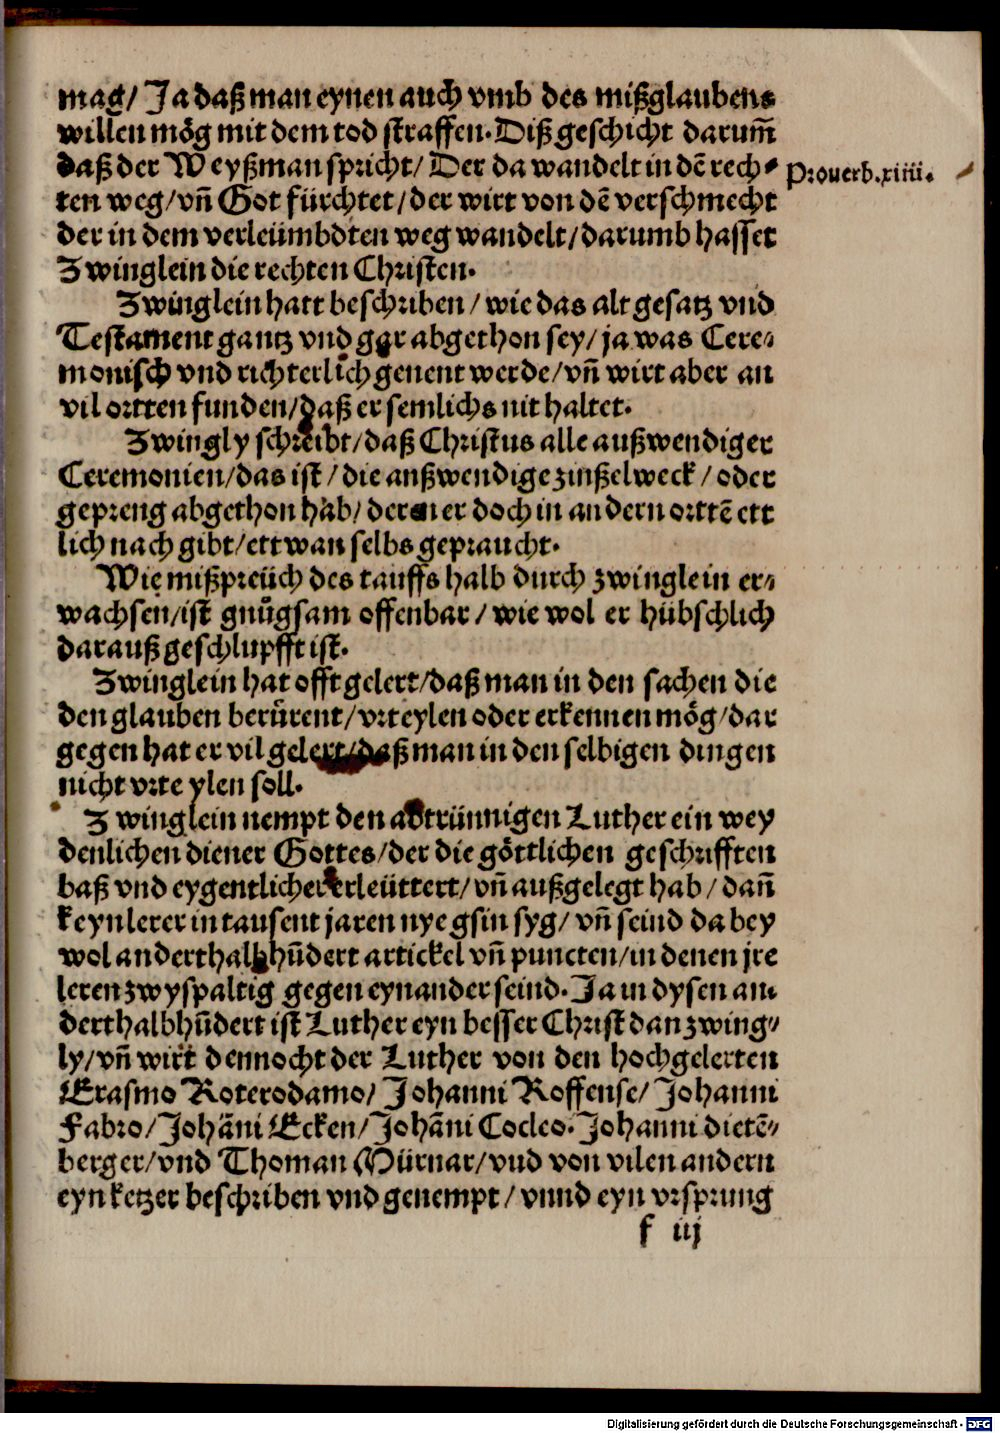 mag/ Ja daß man eynen auch vmb des mißglaubens
willen mög mit dem tod straffen. Diß geschicht darum̃
daß der Weyßman spricht/ Der da wandelt in dẽ rech⸗
Prouerb.xiiii.
ten weg/vñ Got fürchtet/der wirt von dẽ verschmecht
der in dem verleümbdten weg wandelt/darumb hasset
Zwinglein die rechten Christen.
Zwinglein hatt beschriben/wie das alt gesatz vnd
Testament gantz vnd gar abgethon sey/ja was Cere⸗
monisch vnd richterlich genent werde/vñ wirt aber an
vil ortten funden/daß er semlichs nit haltet.
Zwingly schreibt/daß Christus alle außwendiger
Ceremonien/das ist/die anßwendige zinßelweck/oder
gepreng abgethon hab/deren er doch in andern orttẽ ett
lich nach gibt/ettwan selbs gepraucht.
Wie mißpreüch des tauffs halb durch zwinglein er⸗
wachsen/ist gnůgsam offenbar/wie wol er hübschlich
darauß geschlupfft ist.
Zwinglein hat offt gelert/daß man in den sachen die
den glauben berůrent/vrteylen oder erkennen mög/dar
gegen hat er vil gelert/daß man in den selbigen dingen
nicht vrteylen soll.
Zwinglein nempt den abtrünnigen Luther ein wey
denlichen diener Gottes/der die göttlichen geschrifften
baß vnd eygentlicher erleüttert/vñ außgelegt hab/dañ
keyn lerer in tausent jaren nye gsin syg/vñ seind dabey
wol anderthalbhũdert artickel vñ puncten/in denen jre
leren zwyspaltig gegen eynander seind. Ja in dysen an⸗
derthalbhũdert ist Luther eyn besser Christ dan zwing⸗
ly/vñ wirt dennocht der Luther von den hochgelerten
Erasmo Roterodamo/Johanni Roffense/Johanni
Fabro/Johãni Ecken/Johãni Cocleo. Johanni dietẽ⸗
berger/vnd Thoman Mürnar/vnd von vilen andern
eyn ketzer beschriben vnd genempt/vnnd eyn vrsprung
f iij
Digitalisierung gefördert durch die Deutsche Forschungsgemeinschaft - DFG